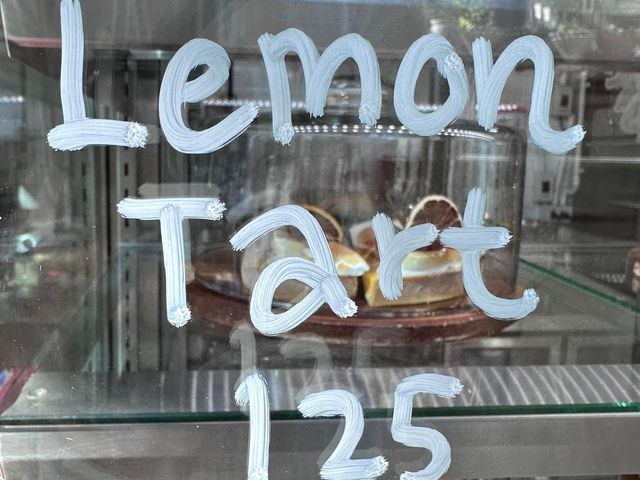 Lemon
Tart
125